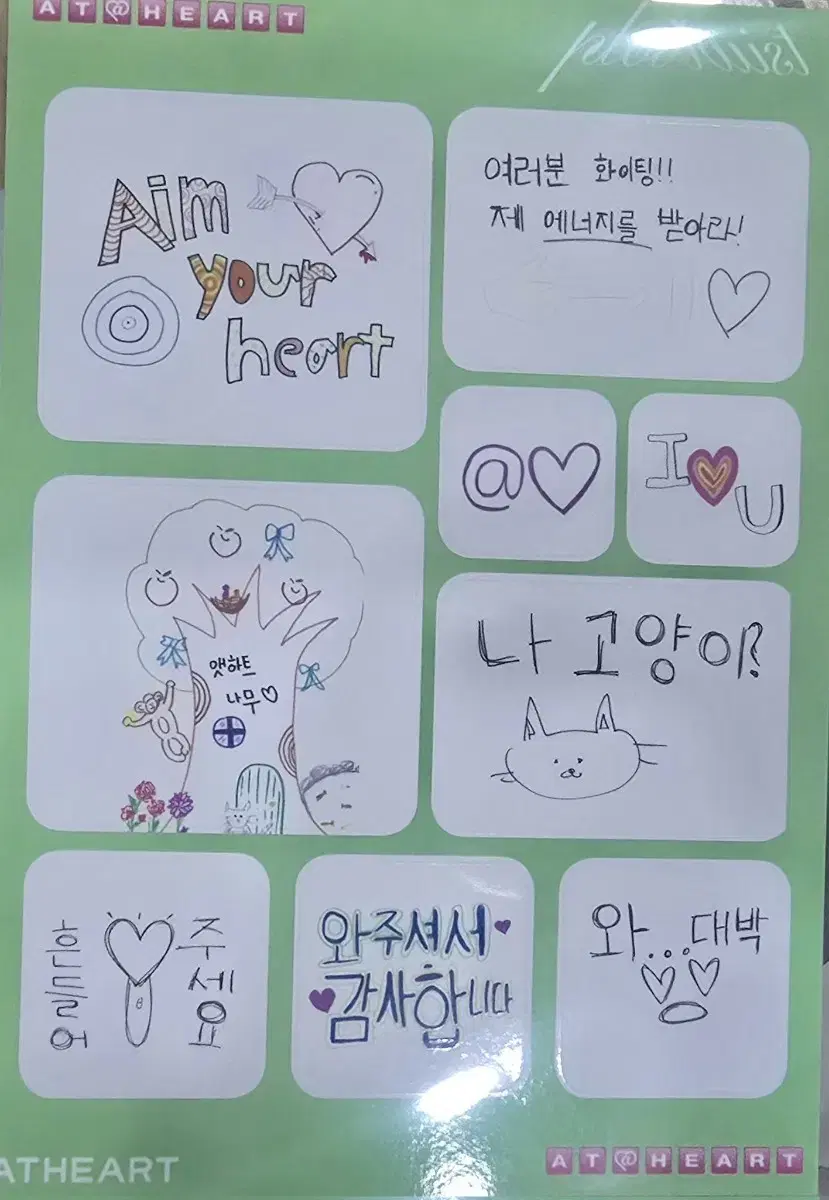 AT@HEART
Aim
your
heart
여러분 화이팅!!
제 에너지를 받아라!
@♡
I ♥ U
앳하트
나무♡
나 고양이?
주
세
요
와주셔서
감사합니다
와...대박
ATHEART
AT@HEART